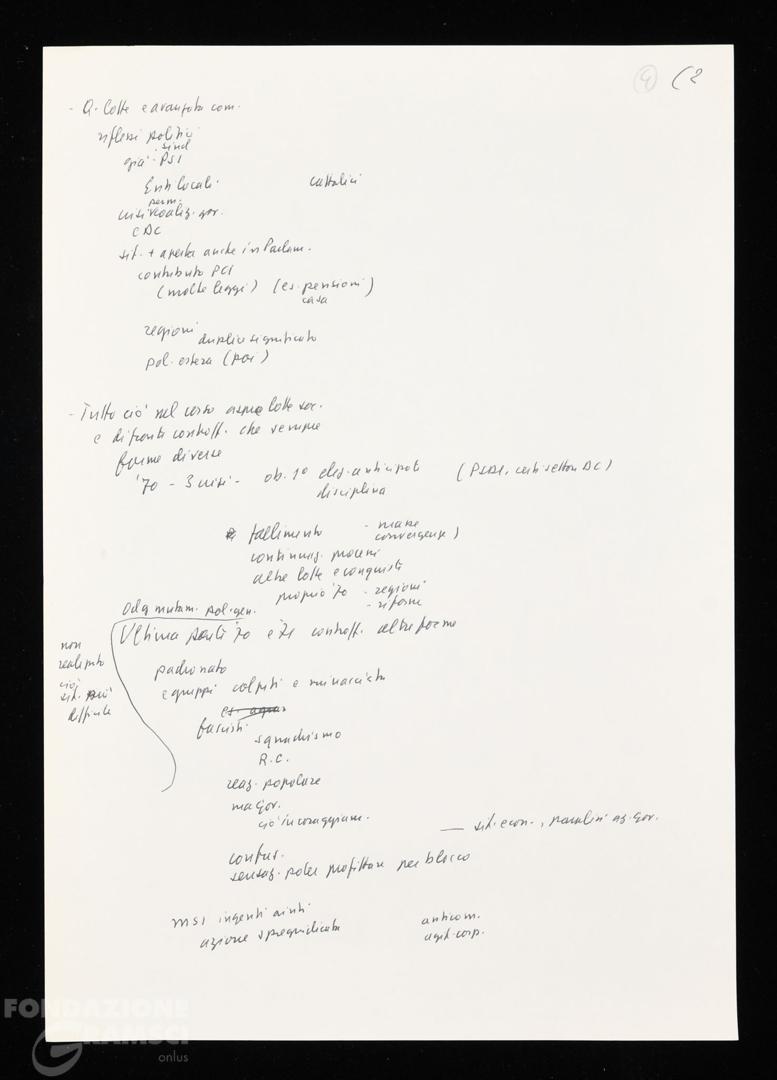 4 (2
- Q. lotte e avanzata com.
riflessi politici
sind
già - PSI
Enti locali - cattolici
perm.
crisi realiz. gov.
e DC
sit. + aperta anche in Parlam.
contributo PCI
(molte leggi) (es. pensioni)
casa
regioni
duplice significato
pol. estera (poi)
- Tutto ciò nel corso aspre lotte soc.
e di fronte controff. che sempre
forme diverse
'70 - 3 crisi - ob. 1º elez. anticipate (PSDI, certi settori DC)
disciplina
fallimento - masse
convergenze)
continuaz. processi
altre lotte e conquiste
proprio '70 - regioni
- riforme
Od g mutam. pol. gen.
Ultima parte '70 e '71 controff. altre forme
non
realizzato
ciò
sit. più
difficile
padronato
e gruppi colpiti e minacciati
fascisti
squadrismo
R.C.
reaz. popolare
ma gov.
ciò incoraggiam.
— sit. econ., paralisi az. gov.
confus.
sensaz. poter profittare per blocco
MSI ingenti aiuti anticom.
azione spregiudicata agit. corp.
FONDAZIONE
GRAMSCI
onlus